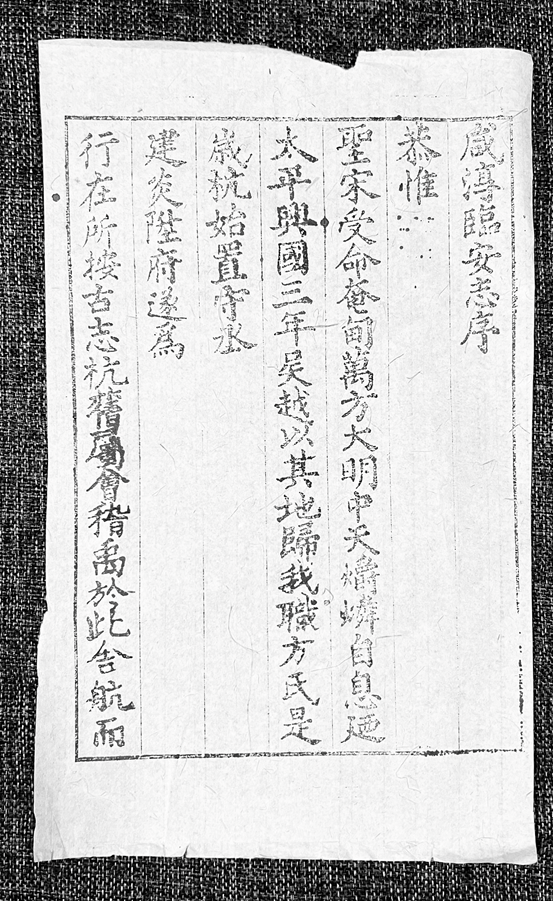 咸淳臨安志序
恭惟
聖宋受命奄甸萬方大明中天爝燐自息廼
太平興國三年吴越以其地歸我職方氏是
歲杭始置守丞
建炎陞府遂爲
行在所按古志杭舊屬會稽禹於此舍航而